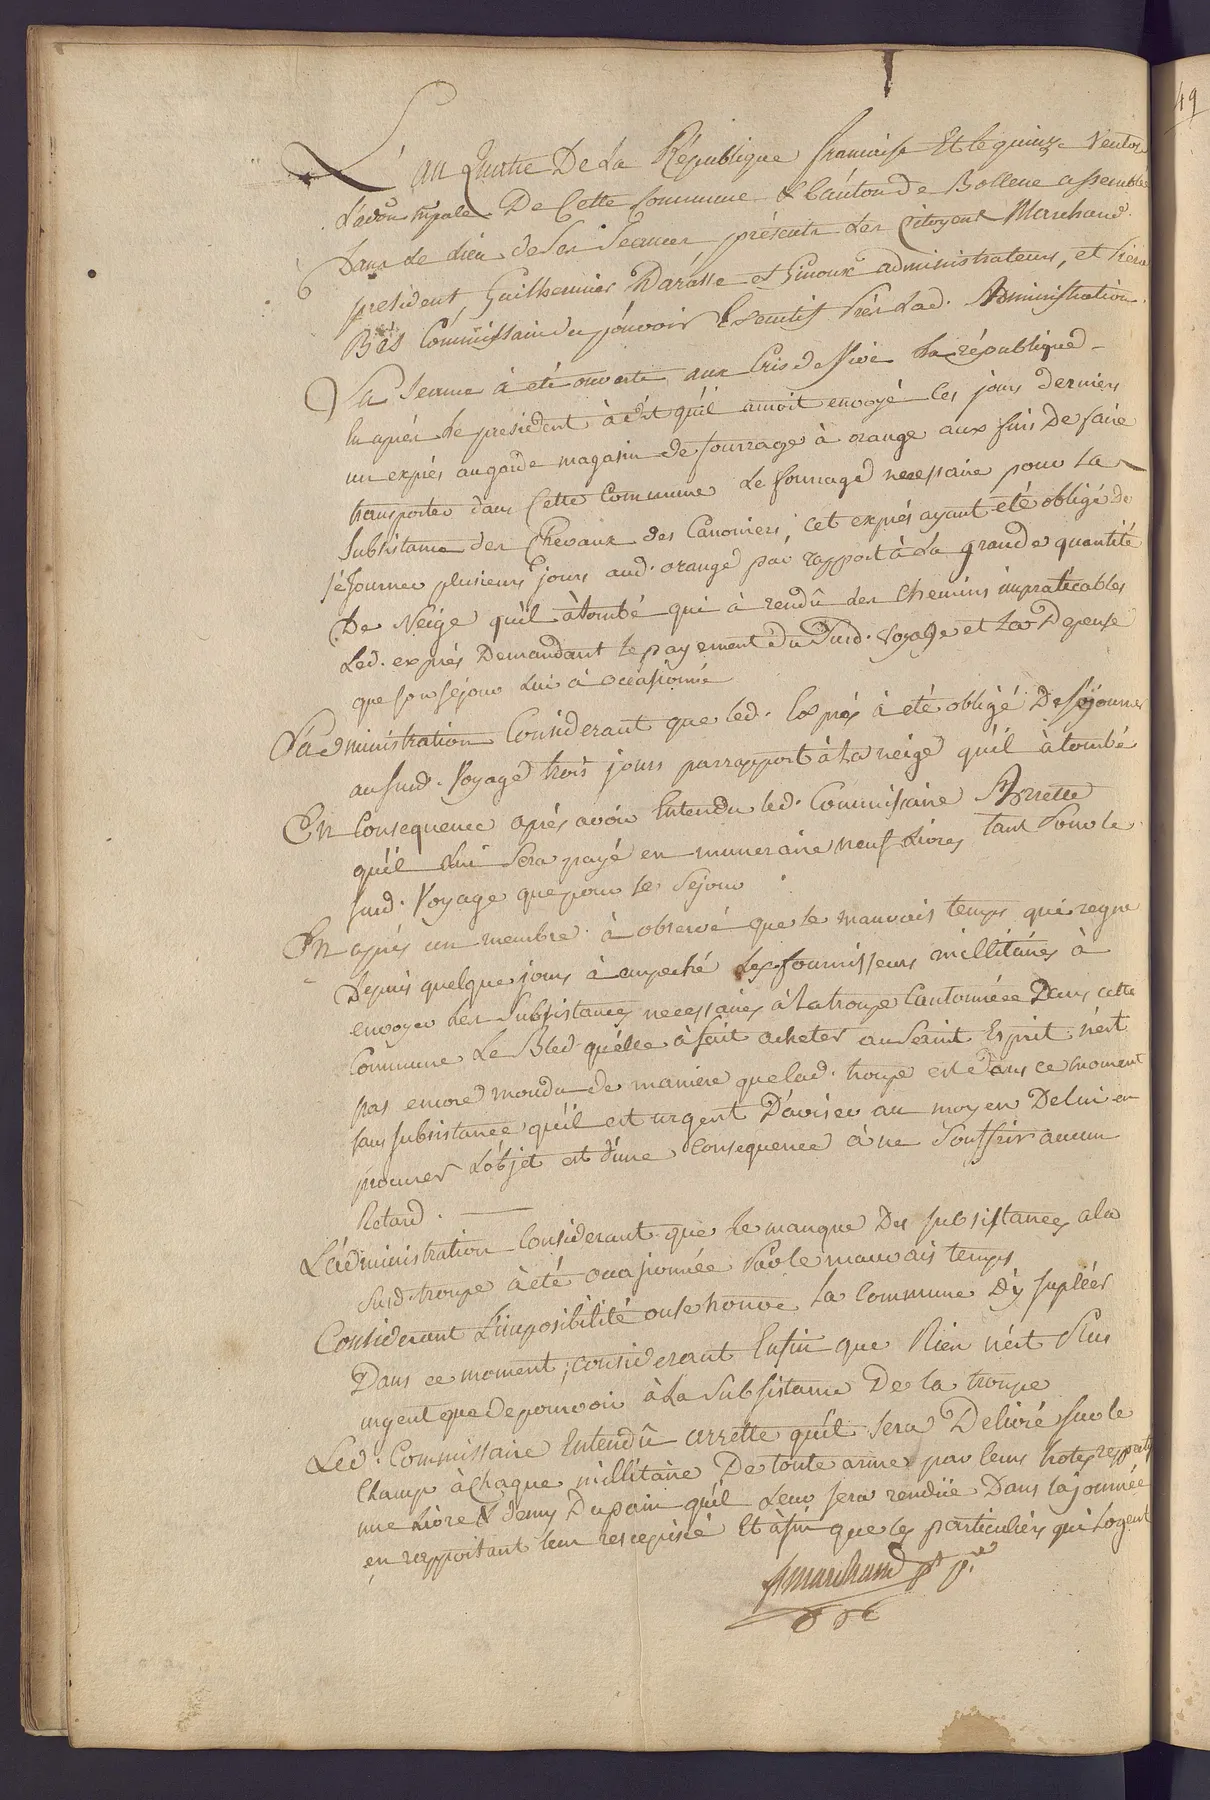 L'an Quatre De La République francaise Et le quinze Ventose
L'adon mpale De Cette Commune & Canton de Bollene assemblée
Dans Le Lieu de Ses Seances présents Les Citoyens Marchand
président, Guilhermier Darasse et Giroux administrateurs, et
Bès Commissaire du pouvoir Executif Près Lad. Administration
La Seance à été ouverte aux Cris de Vive La république
En après Le président à dit qu'il auroit envoyé Ces jours derniers
un exprés au garde magasin de fourrage à orange aux fins De faire
transporter dans Cette Commune Le fourrage necessaire pour La
Subsistance des Chevaux des Canoniers, cet exprés ayant été obligé de
séjourner plusieurs jours aud. orange par rapport à La grande quantité
De Neige qu'il à tombé qui à rendû les chemins impraticables
Led. exprés Demandant le payement du Susd. Voyage et La Depense
que son sejour Lui à occasionné
L'administration Considerant que led. Exprés à été obligé De Sejourner
au susd. Voyage trois jours par rapport à La neige qu'il à tombé
En Consequence après avoir Entendu led. Commissaire Arrette
qu'il Lui Sera payé en numeraire neuf Livres tant Pour le
susd. Voyage que pour le Sejour
En après un membre à observé que le mauvais temps qui regne
Depuis quelque jours à empeché Les fournisseurs millitaires à
envoyer Les Subsistances necessaires à La troupe Cantonnéee Dans cette
Commune Le Bled qu'elle à fait acheter au Saint Esprit n'est
pas encore moudu de maniere que lad. troupe est dans ce moment
sans subsistance qu'il est urgent D'aviser au moyen De lui en
procurer L'objet est d'une Consequence à ne Souffrir aucun
Retard.
L'administration Considerant que le manque Des subsistances a la
susd. troupe à été occasionnée Par le mauvais temps
Considerant L'imposibilité ou se trouve La Commune D'y supléer
Dans ce moment, considerant Enfin que Rien n'est Plus
urgent que de pourvoir à La Subsistance De la troupe
Led. Commissaire Entendû arrette qu'il sera Delivré sur le
Champ à Chaque millitaire De toute arme par leurs hotes respectifs
une Livre & demy Du pain qu'il Leur sera rendüe Dans la journée
en rapportant leur recepissé Et afin que les particuliers qui Logent
Marchand pt
49